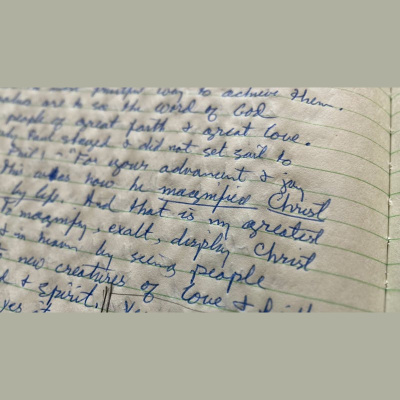 powerful way to achieve them.
are to sow the word of God
people of great faith & great love.
Paul stayed & did not set sail to
"For your advancement & joy
this was how he magnified Christ
by life. And that is my greatest
To magnify, exalt, display Christ
& in heaven by seeing people
new creatures of love &
& spirit.
yes